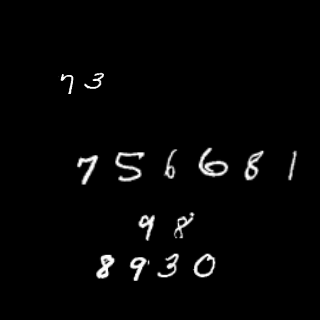 73
756681
98
8930